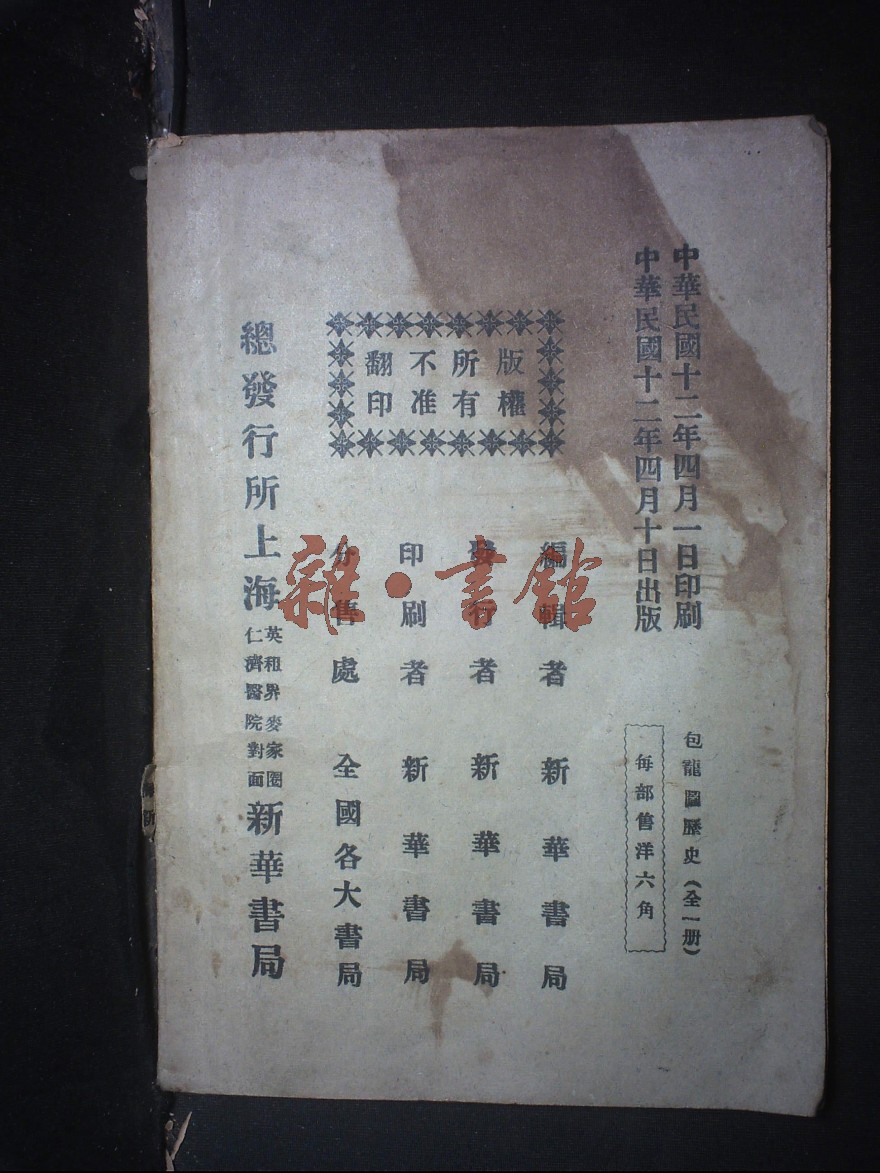 中華民國十二年四月一日印刷
中華民國十二年四月十日出版
包龍圖歷史（全一册）
每部售洋六角
版權
所有
不准
翻印
編輯者 新華書局
發行者 新華書局
印刷者 新華書局
分售處 全國各大書局
總發行所上海
英租界麥家圈
仁濟醫院對面
新華書局
雜·書館